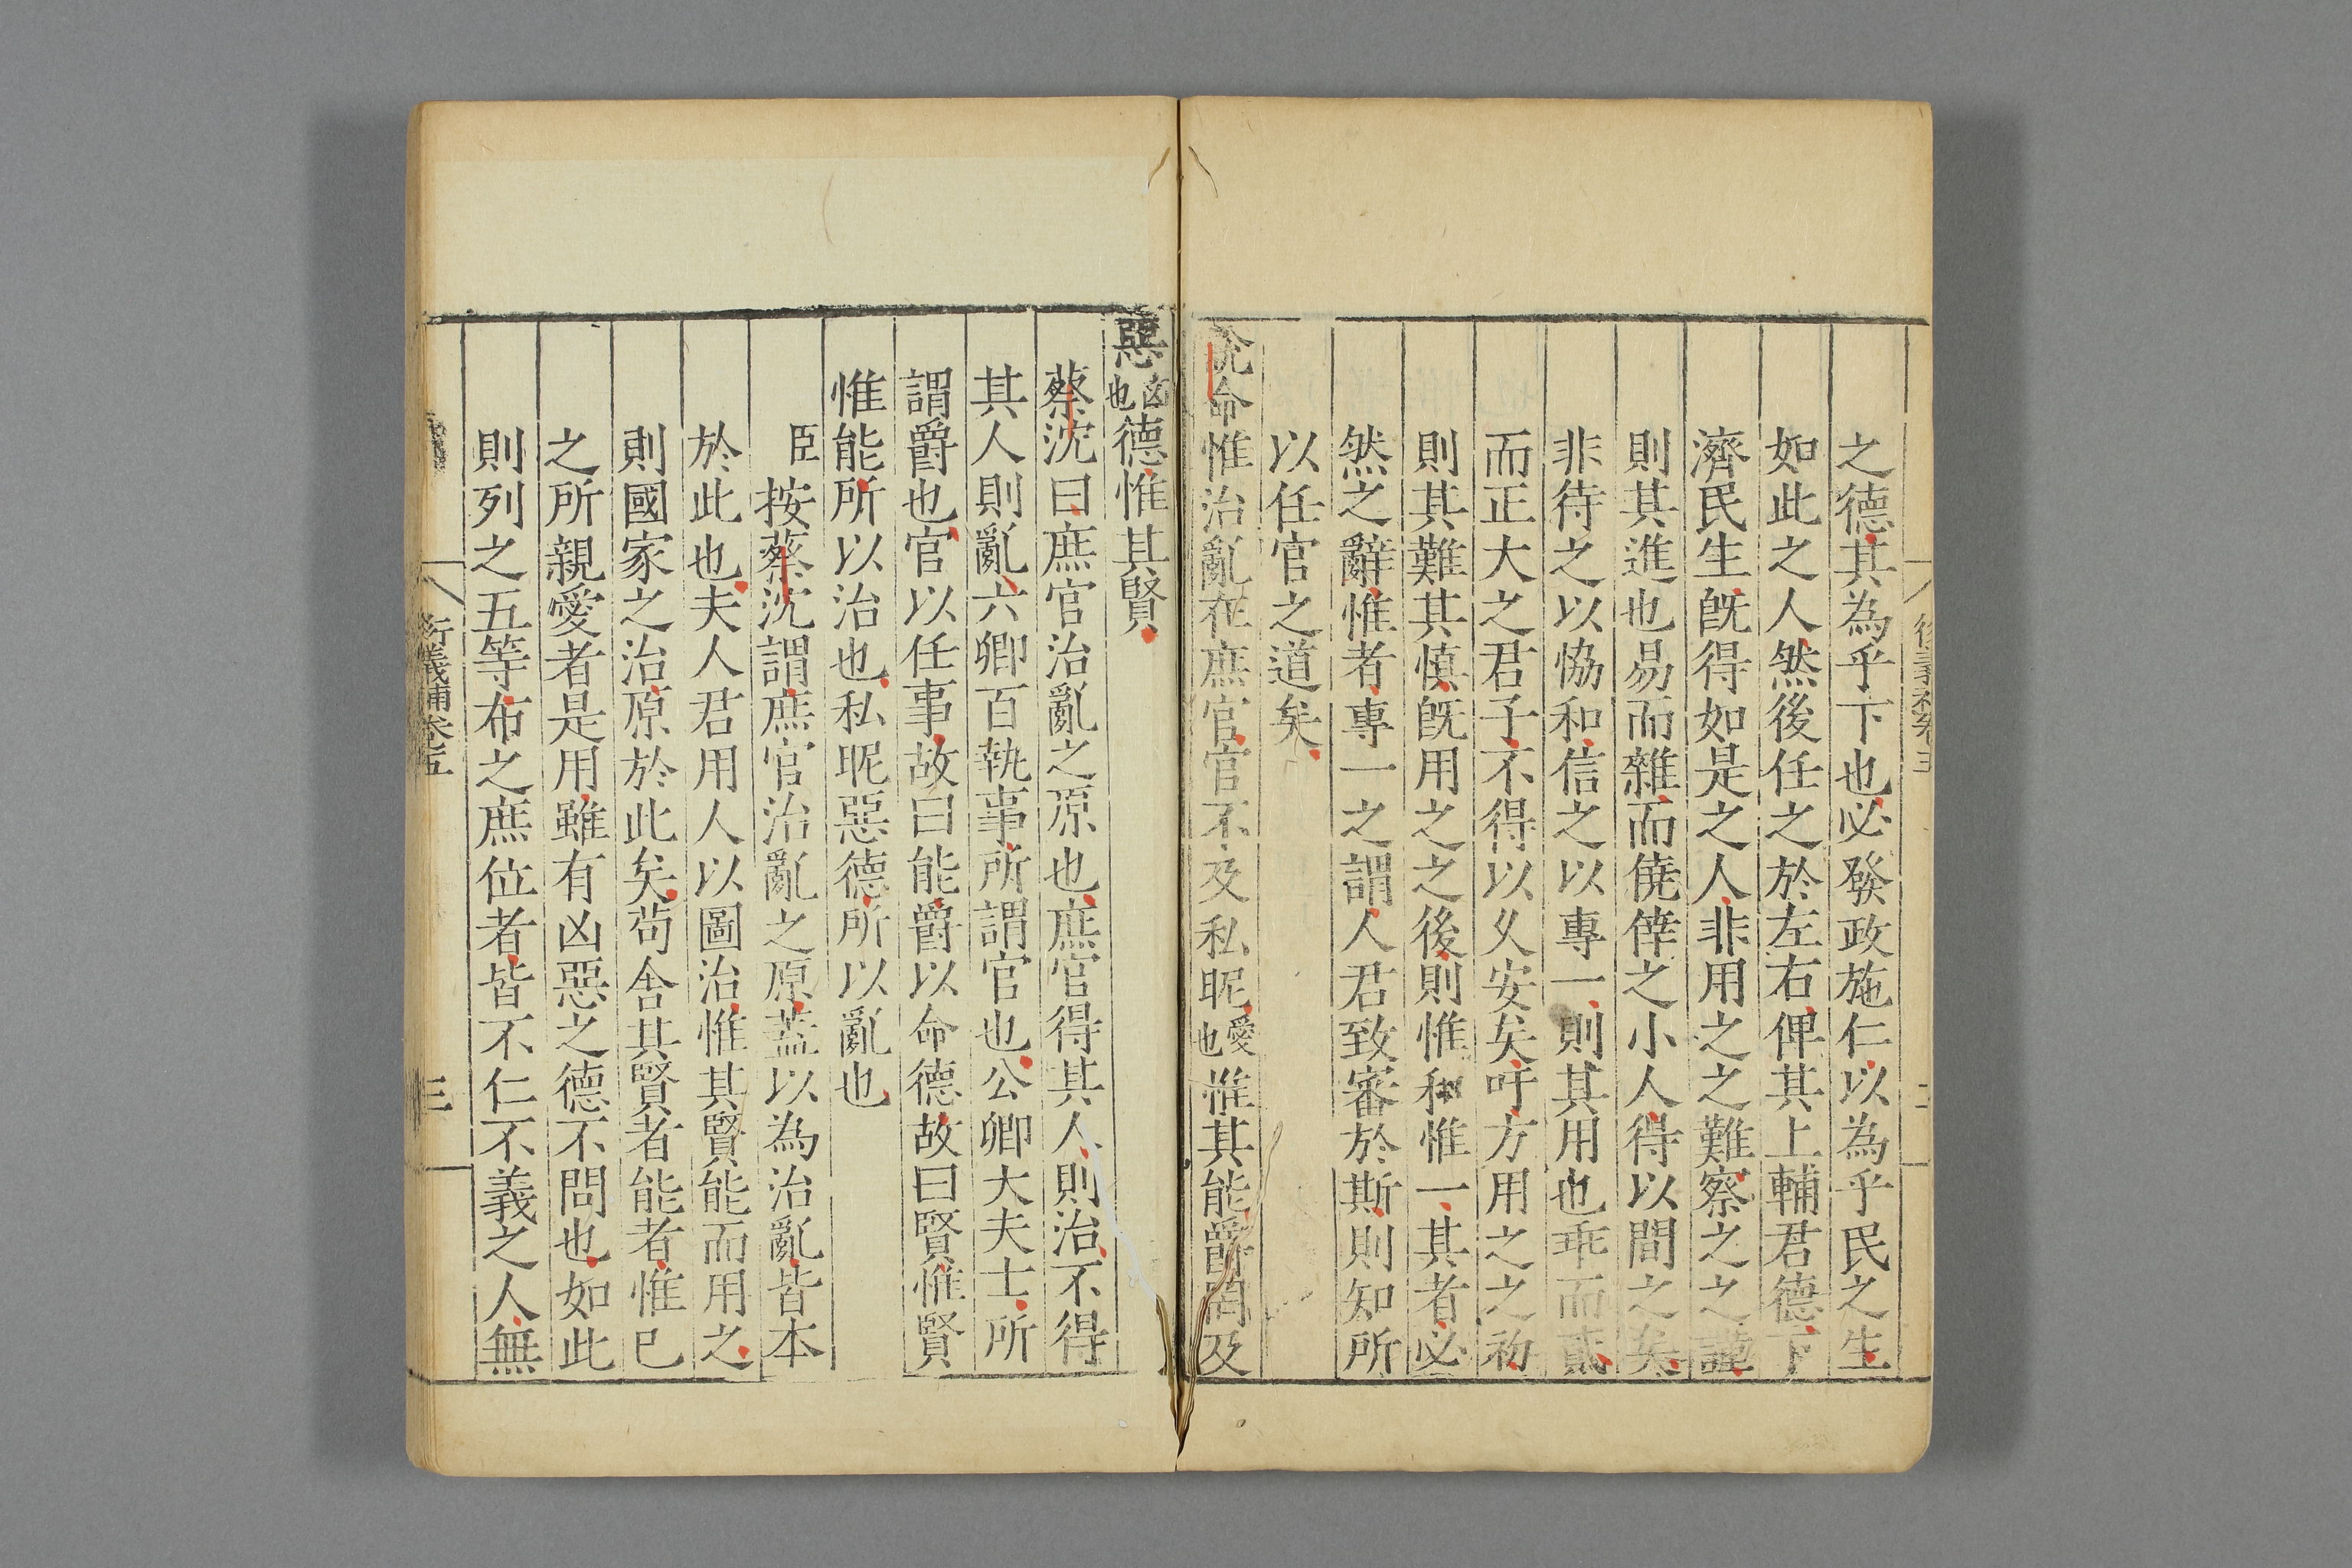 之德其為乎下也必發政施仁以為乎民之生
如此之人然後任之於左右俾其上輔君德下
濟民生旣得如是之人非用之之難察之之謹
則其進也易而雜而僥倖之小人得以間之矣
非待之以恊和信之以專一則其用也乖而貳
而正大之君子不得以乆安矣吁方用之之初
則其難其慎旣用之之後則惟和惟一其者必
然之辭惟者專一之謂人君致審於斯則知所
以任官之道矣
說命惟治亂在庶官官不及私昵愛也惟其能爵罔及
惡凶也德惟其賢
蔡沈曰庶官治亂之原也庶官得其人則治不得
其人則亂六卿百執事所謂官也公卿大夫士所
謂爵也官以任事故曰能爵以命德故曰賢惟賢
惟能所以治也私昵惡德所以亂也
臣按蔡沈謂庶官治亂之原蓋以為治亂皆本
於此也夫人君用人以圖治惟其賢能而用之
則國家之治原於此矣茍舍其賢者能者惟已
之所親愛者是用雖有凶惡之德不問也如此
則列之五等布之庶位者皆不仁不義之人無
衍義補卷五
三